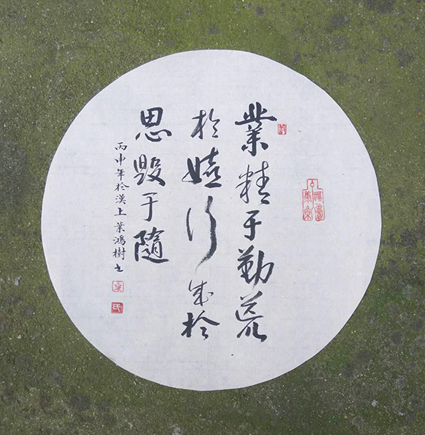 業精于勤荒
於嬉行成於
思毀于隨
丙申年於漢上葉鴻樹书